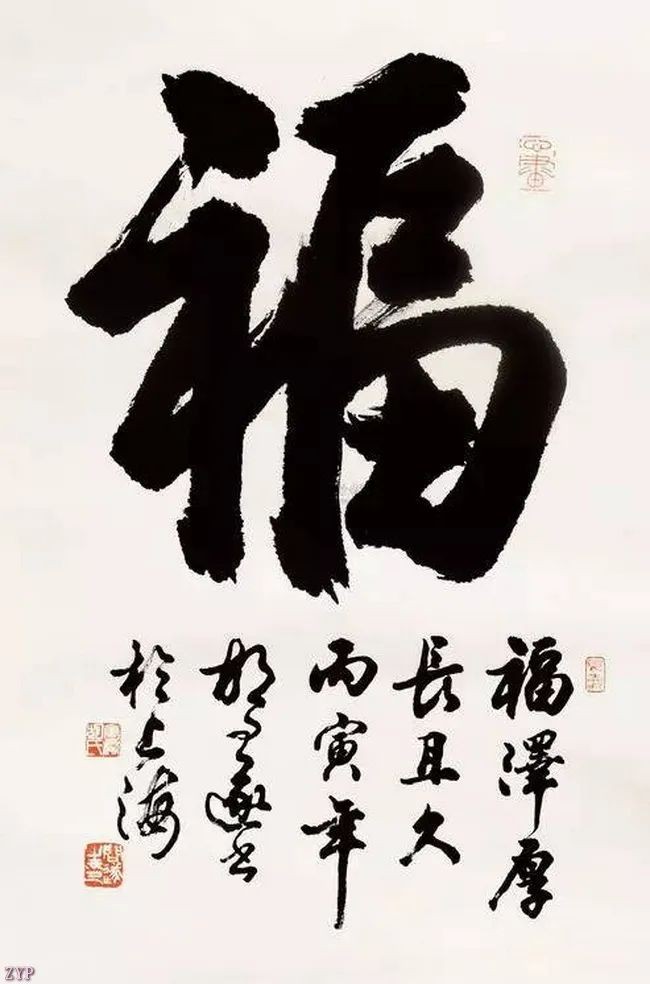 福
福澤厚
長且久
丙寅年
胡问遂书
於上海
ZYP